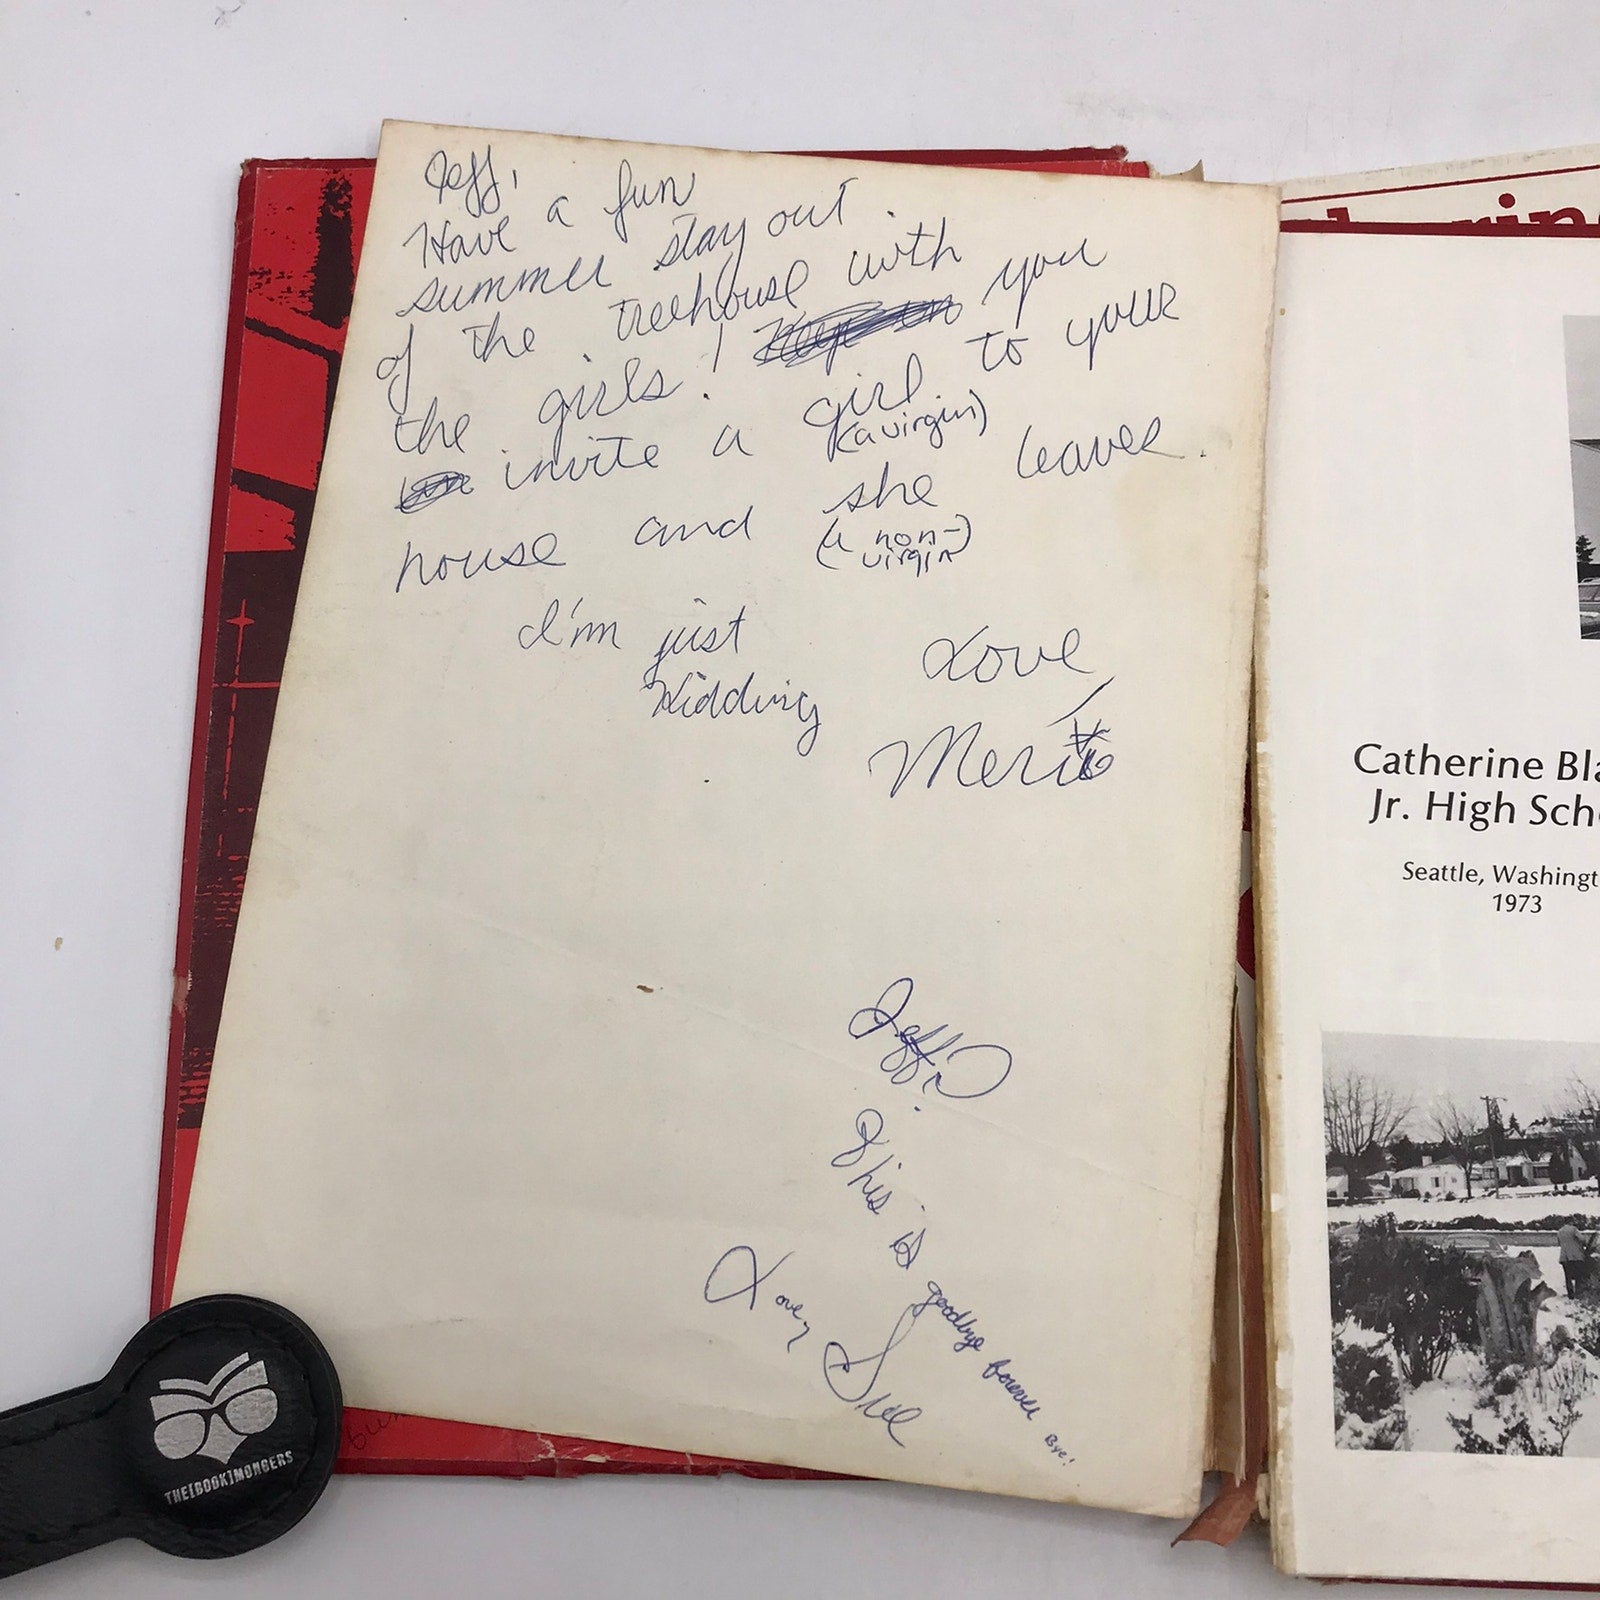 Jeff,
Have a fun
summer stay out
of the treehouse with
the girls! you
invite a girl to your
(a virgin)
house and she leaves.
(a non-
virgin)
I'm just
Kidding
Love,
Jeff
This is
goodbye forever
Bye!
Love,
Sue
Catherine Bla
Jr. High Scho
Seattle, Washingt
1973
THE[BOOK]MONGERS